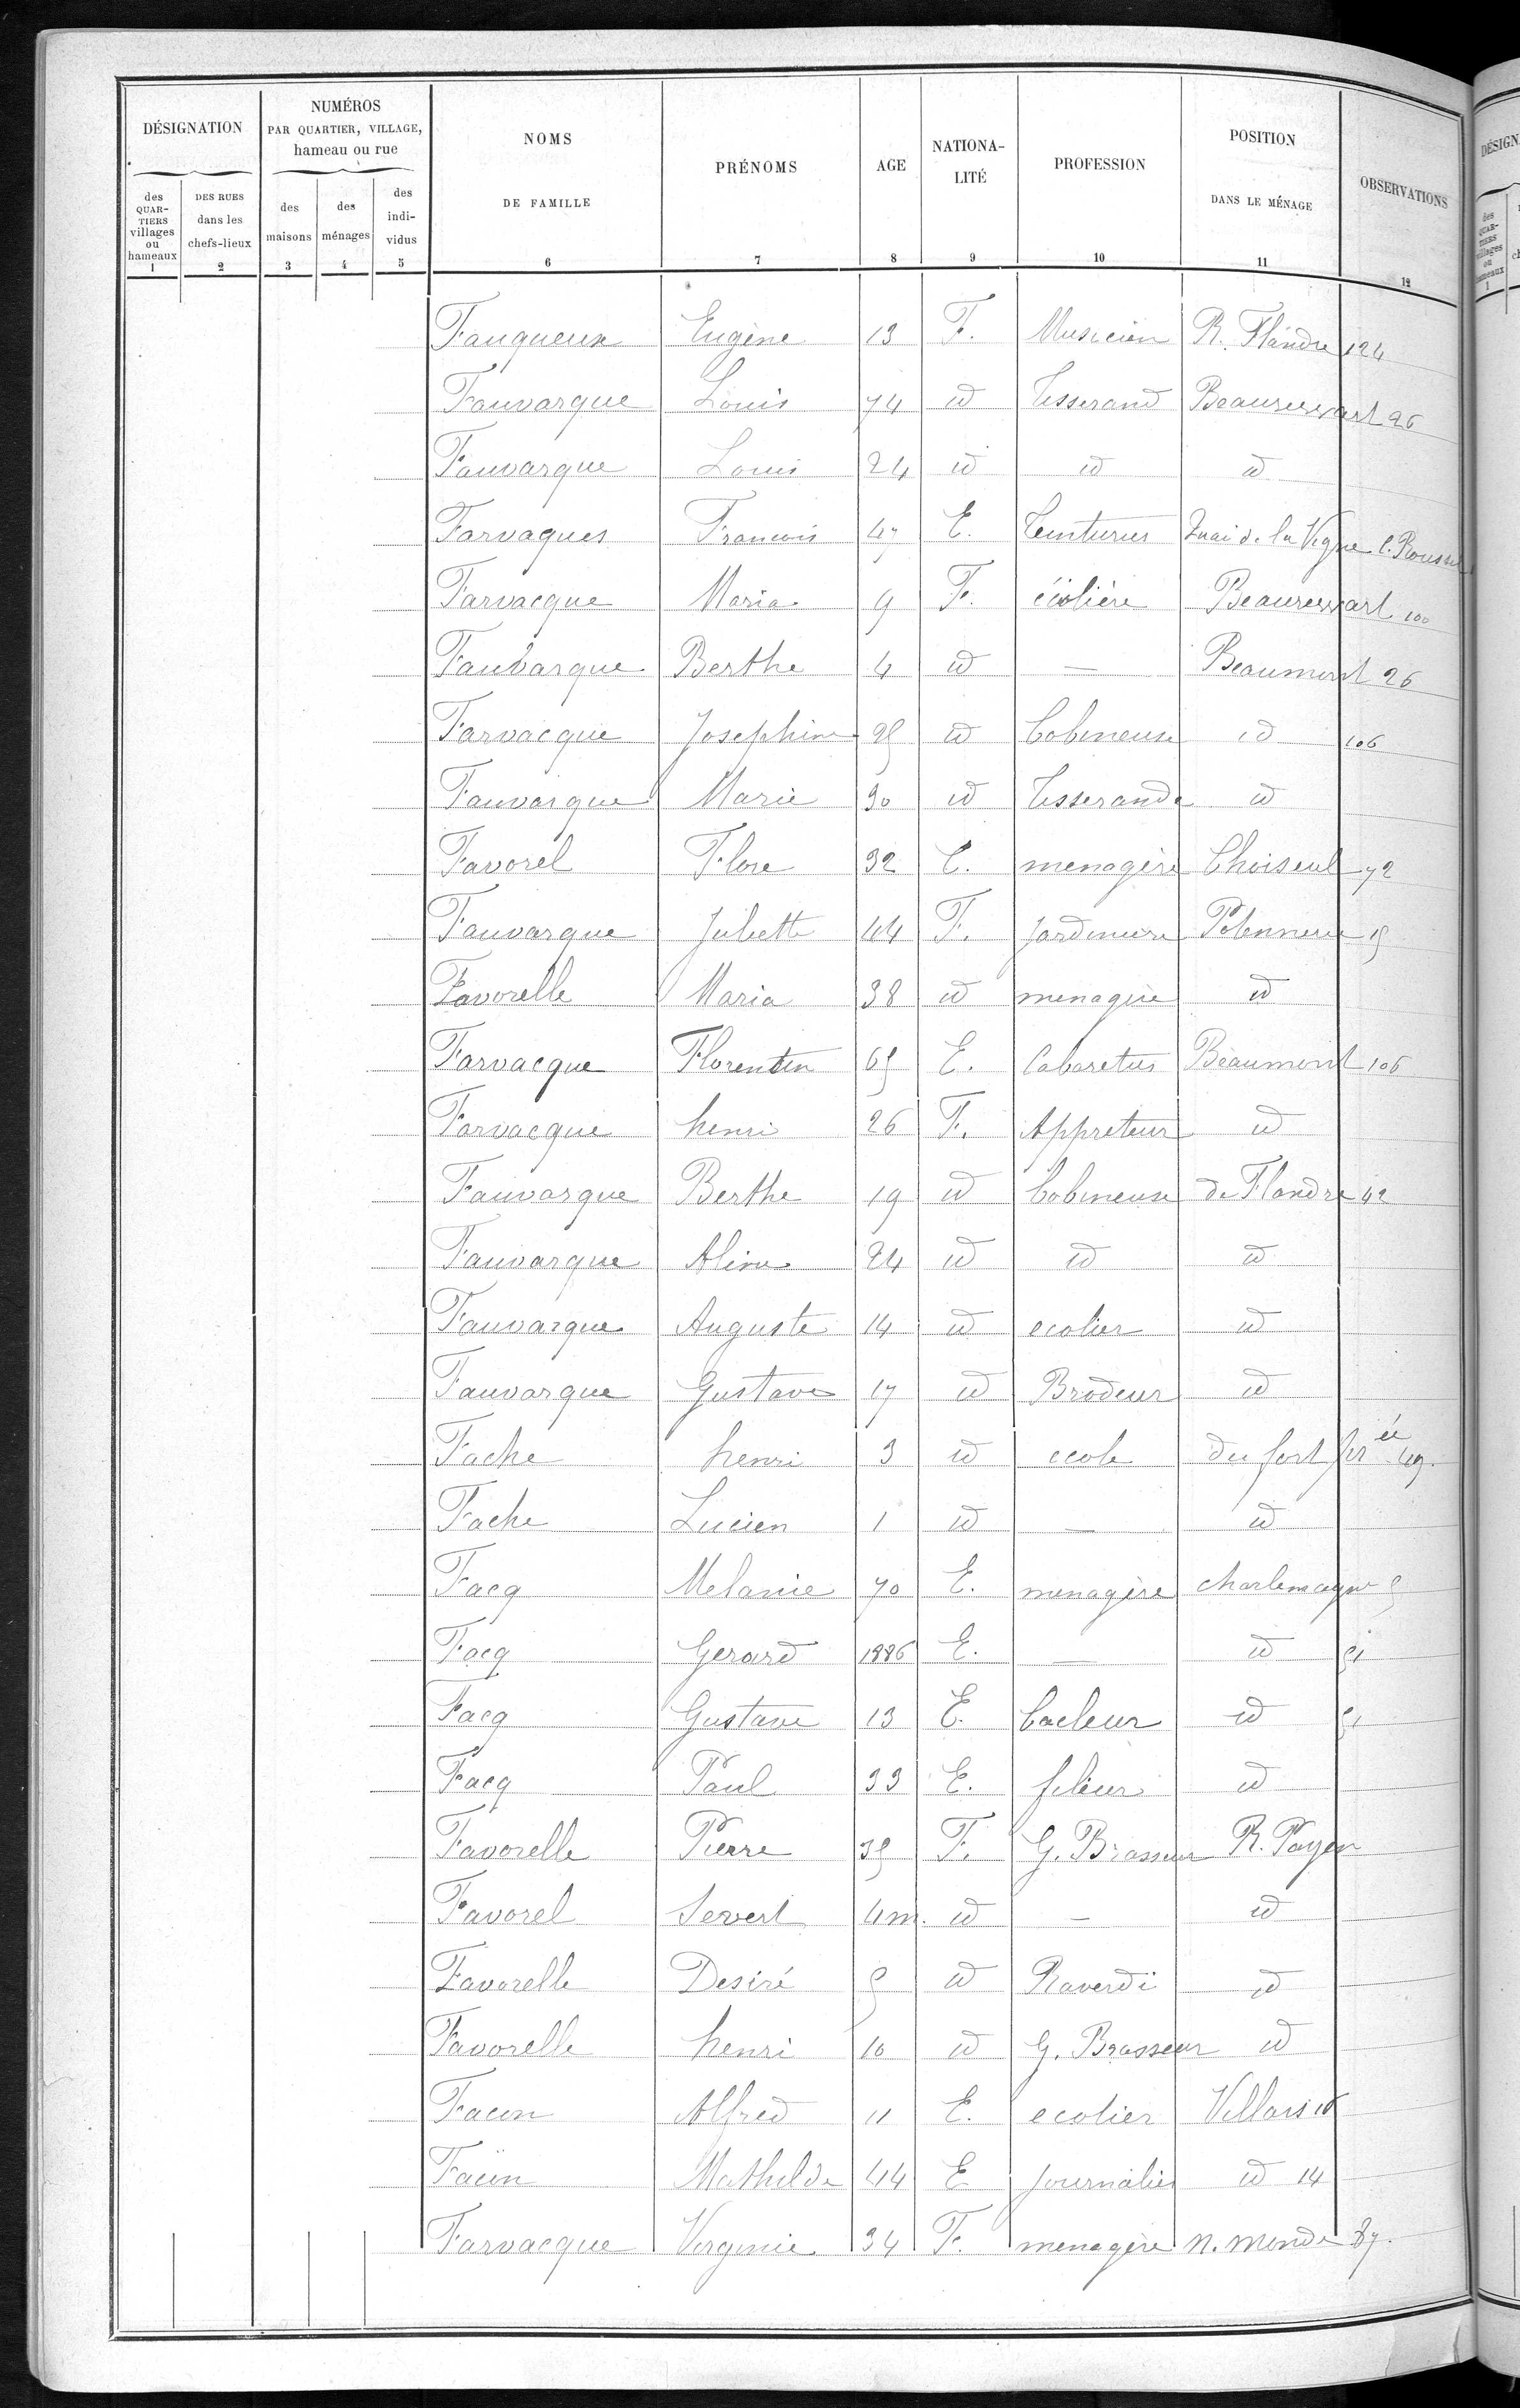 DÉSIGNATION
NUMÉROS PAR QUARTIER, VILLAGE, hameau ou rue
NOMS DE FAMILLE
PRÉNOMS
AGE
NATIONALITÉ
PROFESSION
POSITION DANS LE MÉNAGE
OBSERVATIONS
des QUARTIERS villages ou hameaux
DES RUES dans les chefs-lieux
des maisons
des ménages
des individus
1 2 3 4 5 6 7 8 9 10 11 12
Fauqueux Eugène 13 F. Musicien R. Flandre 124
Fauvarque Louis 74 id Tisserand Beaurewart 26
Fauvarque Louis 24 id id id
Farvaques Francois 47 E. Teinturier Quai de la Vigne C. Roussel
Farvacque Maria 9 F. écolière Beaurewart 100
Faubarque Berthe 4 id — Beaumont 26
Farvacque Josephine 25 id Bobineuse id 106
Fauvarque Marie 30 id Tisserande id
Favorel Flore 32 E. menagère Choiseul 72
Fauvarque Juliette 44 F. Jardiniere 15
Favorelle Maria 38 id menagère id
Farvacque Florentin 65 E. Cabaretier Beaumont 106
Farvacque henri 26 F. Appreteur id
Fauvarque Berthe 19 id Bobineuse de Flandre 42
Fauvarque Aline 24 id id id
Fauvarque Auguste 14 id ecolier id
Fauvarque Gustave 17 id Brodeur id
Fache henri 3 id ecole du fort prée 49.
Fache Lucien 1 id — id
Facq Melanie 70 E. menagère charlemagne 5
Facq Gerard 1886 E. — id 51
Facq Gustave 13 E. Bacleur id 51
Facq Paul 33 E. fileur id
Favorelle Pierre 35 F. G. Brasseur R. Payen
Favorel Severt 4m. id — id
Favorelle Desiré 5 id Raverdi id
Favorelle henri 10 id G. Brasseur id
Facon Alfred 11 E. ecolier Villars 16
Facon Mathilde 44 E journalier id 14
Farvacque Virginie 34 F. menagère n. monde 87.
DÉSIGN
des QUARTIERS villages ou hameaux
1